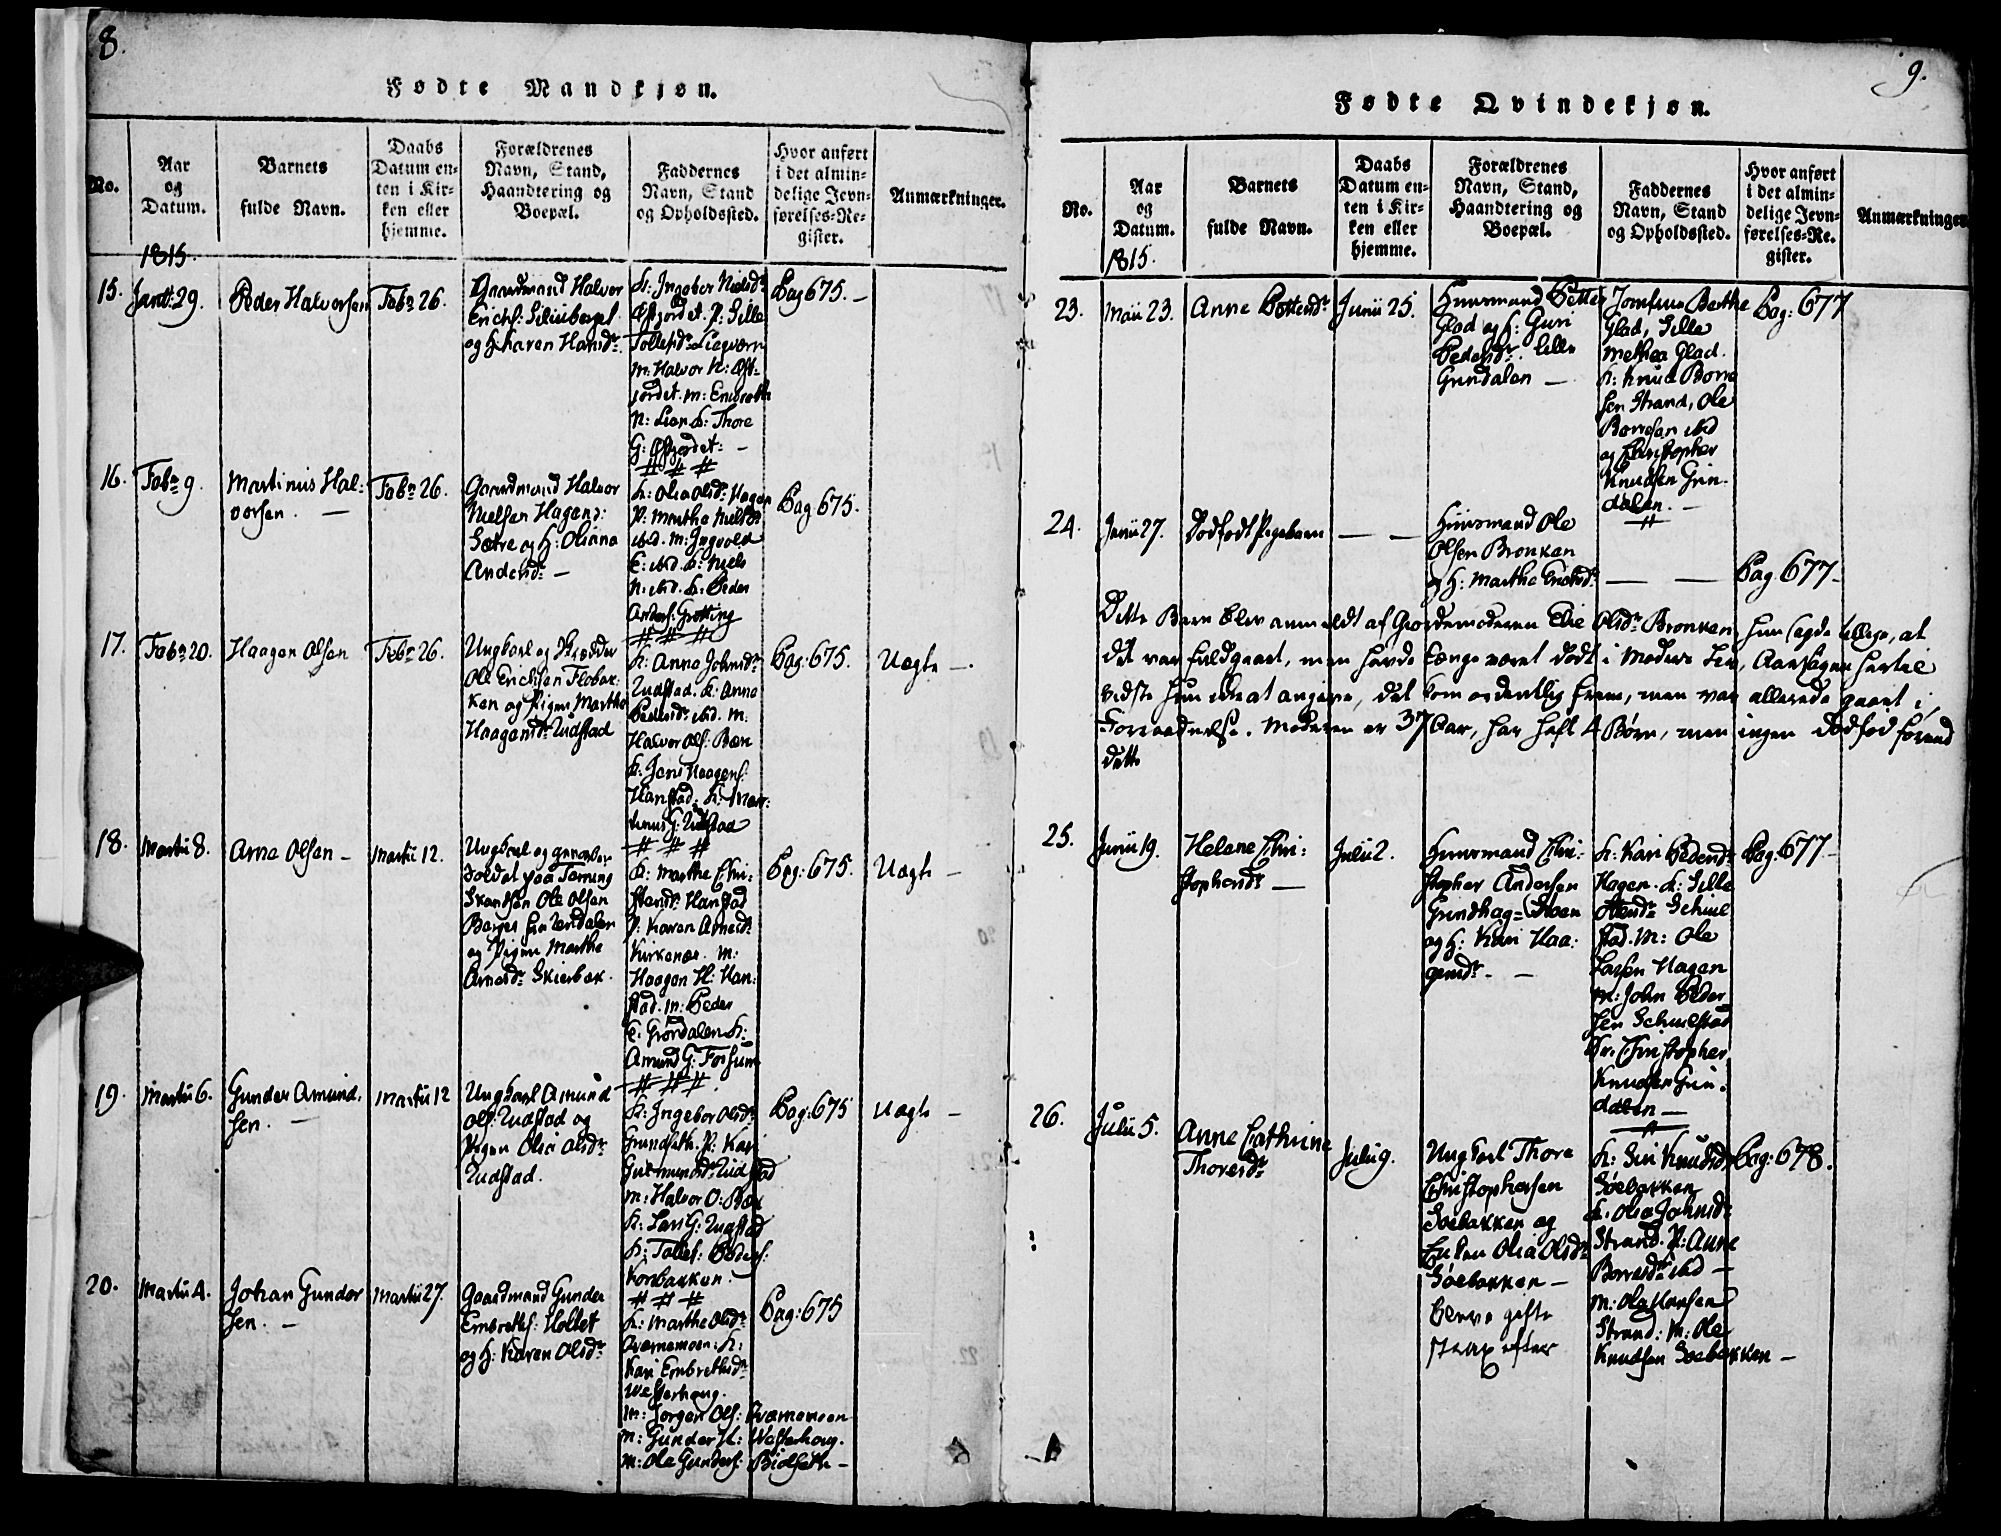 8.
Fødte Mandkjøn.
No.
Aar
og
Datum.
Barnets
fulde Navn.
Daabs
Datum en-
ten i Kir-
ken eller
hjemme.
Forældrenes
Navn, Stand,
Haandtering og
Boepæl.
Faddernes
Navn, Stand
og Opholdssted.
Hvor anført
i det almin-
delige Jevn-
førelses-Re-
gister.
Anmærkninger.
1815.
15.
29.
Peder Halvorsen
Febr 26.
Gaardmand Halvor
Erichs:
og H: Karen Hansdr
K: Ingebor Nielsdr
P: Sille
m: Halvor N:
m: Embreth
N: Lien K: Thore
G:
Pag 675. –
16.
Febr 9.
Martinus Hal-
vorsen. –
Febr 26.
Gaardmand Halvor
Nielsen Hagens:
Sætre og H: Oliana
Andersdr –
K: Olia Olsdr Hagen
P: Marthe Nielsdr
ibid. m: Ingvold
E: ibid. K: Niels
N: ibid. K: Peder
Anders: Grøtting
Pag 675.
17.
Febr 20.
Haagen Olsen
Febr 26.
Ungkarl og
Ole Erichsen Flobak-
ken og Pigen Marthe
Haagensdr Rudstad
K: Anne Johnsdr
Rudstad. K: Anne
Pedersdr ibid. m:
Halvor Ols: Bæk
K: Jens Haagens:
Hanstad. K: Mar-
tinus G: Rudstad
Pag: 675.
Uægte –.
18.
Martii 8.
Arne Olsen –
Martii 12.
Ungkarl og
Soldat paa Terning
Skandsen Ole Olsen
Berger fra
og Pigen Marthe
Arnesdr Skierbek.
K: Marthe Chri-
stensdr Hanstad
P: Karen Arnesdr
Kirkenær. m:
Haagen H: Han-
stad. m: Peder
E: Grøndalen K:
Amund G: Forsum
Pag: 675.
Uægte –
19.
Martii 6.
Gunder Amund-
sen. –
Martii 12
Ungkarl Amund
Ols: Rudstad og
Pigen Olia Olsdr
Rudstad.
K: Ingebor Olsdr
Grundseth. P: Kari
Gudmundsdr Rudstad
m: Halvor O: Bæk
K: Lars G: Rudstad
K: Tollef: Peders:
Korsbakken. –
Pag: 675
Uægte –
20.
Martii 4.
Johan Gunder
sen. –
Martii 27.
Gaardmand Gunder
Embreths: Holtet
og H: Karen Olsdr
K: Marthe Olsdr
Kværnemoen: K:
Kari Embrethsdr
Westerhaug.
m: Jørgen Ols: Kværnemoen
m: Gunder H: Westerhaug.
m: Ole Gunders: Bidseth –
Pag: 675
9.
Fødte Qvindekjøn.
No.
Aar
og
Datum.
Barnets
fulde Navn.
Daabs
Datum en-
ten i Kir-
ken eller
hjemme.
Forældrenes
Navn, Stand,
Haandtering og
Boepæl.
Faddernes
Navn, Stand
og Opholdssted.
Hvor anført
i det almin-
delige Jevn-
førelses-Re-
gister.
Anmærkninger
1815.
23.
Maii 23.
Anne Pettersdr
Junii 25.
Huusmand Petter
Glad og H: Guri
Pedersdr. Lille
Grindalen –
Jomfrue Berthe
Glad, Sille
Methea Glad.
K: Knud Borre
sen Strand, Ole
Borresen ibid
og Christopher
Knudsen Grin-
dalen. –
Pag: 677
24.
Junii 27.
Dødfødt Pigebarn
– –
Huusmand Ole
Olsen Bronken
og H: Marthe
– –
Pag. 677–
Dette Barn blev anmeldt af Giordemoderen Elie Olsdr Bronken, hun sagde tillige, at
det var fuldgaaet, men havde længe været dødt i Moders Liv, Aarsagen hertil
vidste hun ikke at angive, det kom ordentlig frem, men var allerede gaaet i
Forraadnelse. Moderen er 37 Aar, har haft 4 Børn, men ingen dødfød forend
dette
25.
Junii 19.
Helene Chri-
stophersdr –
Julii 2.
Huusmand Chri-
stopher Andersen
Grindhag-
og H: Kari Haa-
gensdr – –
K: Kari Pedersdr
Hagen. K: Sille
Schiel
stad. m: Ole
Larsen Hagen
m: John Peder
sen Schielstad
Dr. Christopher
Knudsen Grin-
dalen –
Pag: 677 –
26.
Julii 5.
Anne Cathrine
Thoresdr
Julii 9.
Ungkarl Thore
Christophersen
Søebakken og
Enken Olia Olsdr
Søebakken –
bleve gifte
strax efter
K: Siri Knudsdr
Søebakken
K: Olia Johnsdr
Strand. P: Anne
Borresdr ibid –
m: Ole Hansen
Strand: m: Ole
Knudsen Søebakken –
Pag: 678.